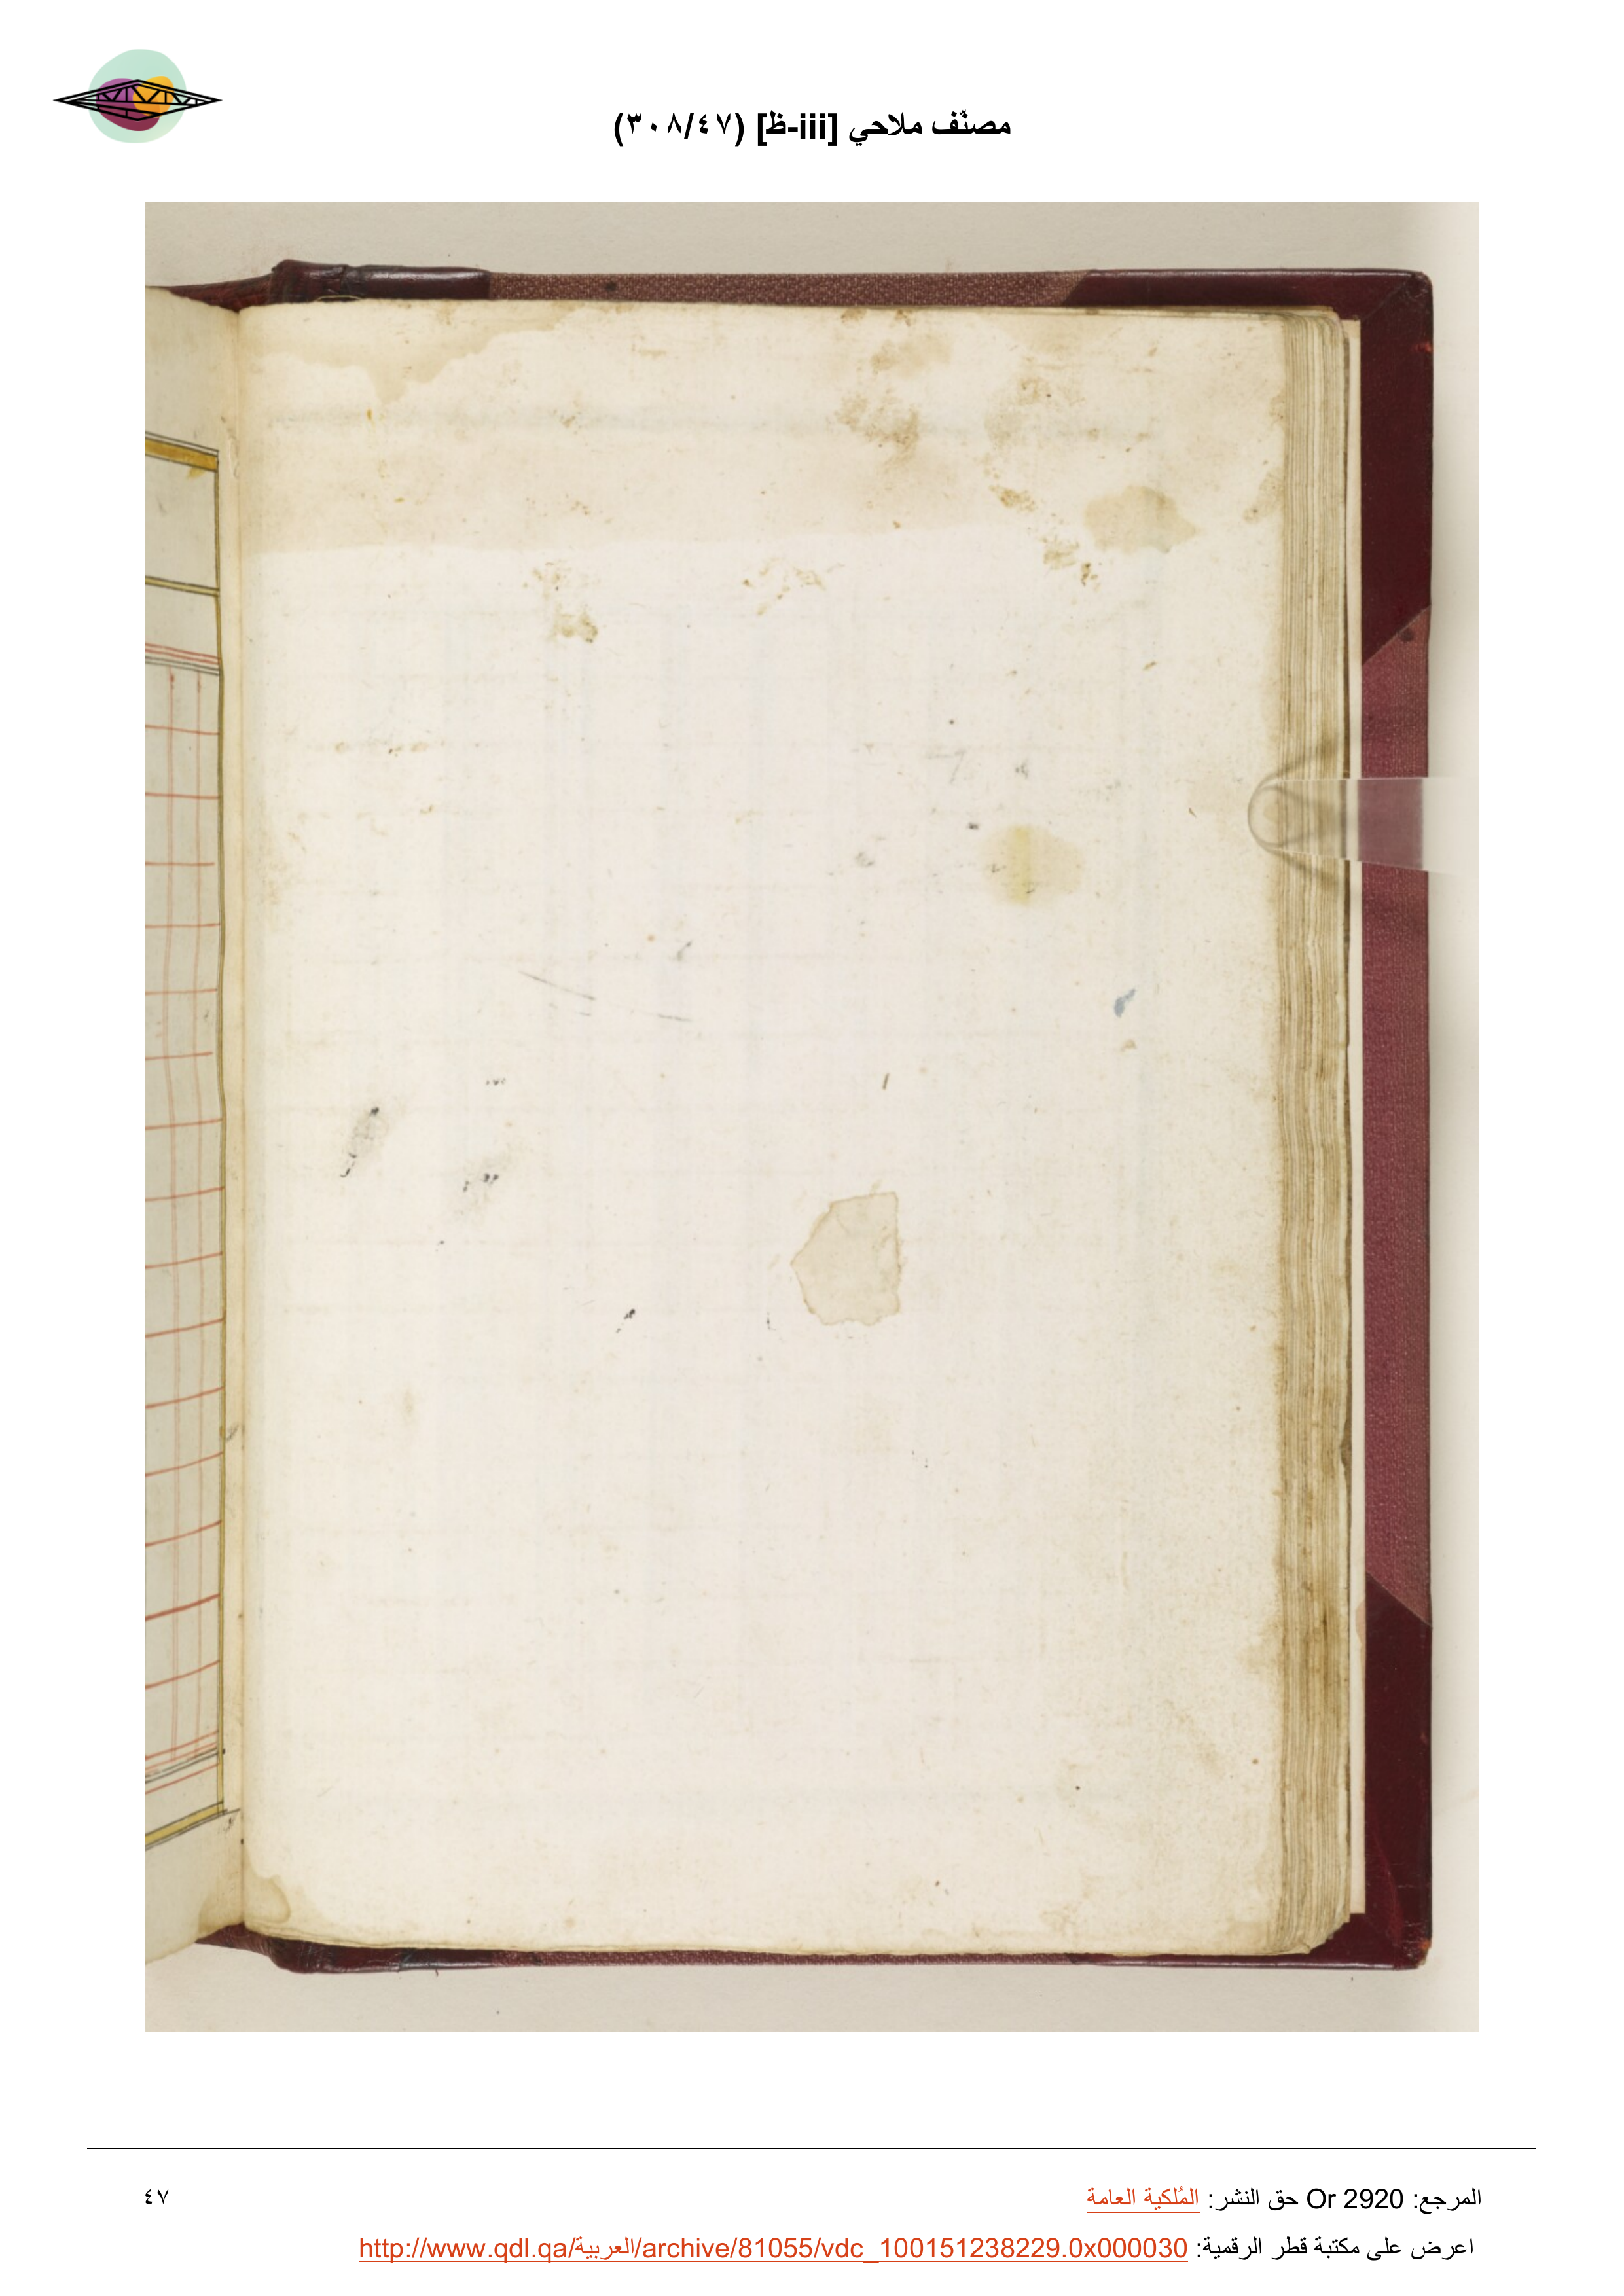 مصنّف ملاحي [iii-ظ] (٣٠٨/٤٧)
المرجع: Or 2920 حق النشر: المُلكية العامة
٤٧
اعرض على مكتبة قطر الرقمية: http://www.qdl.qa/العربية/archive/81055/vdc_100151238229.0x000030